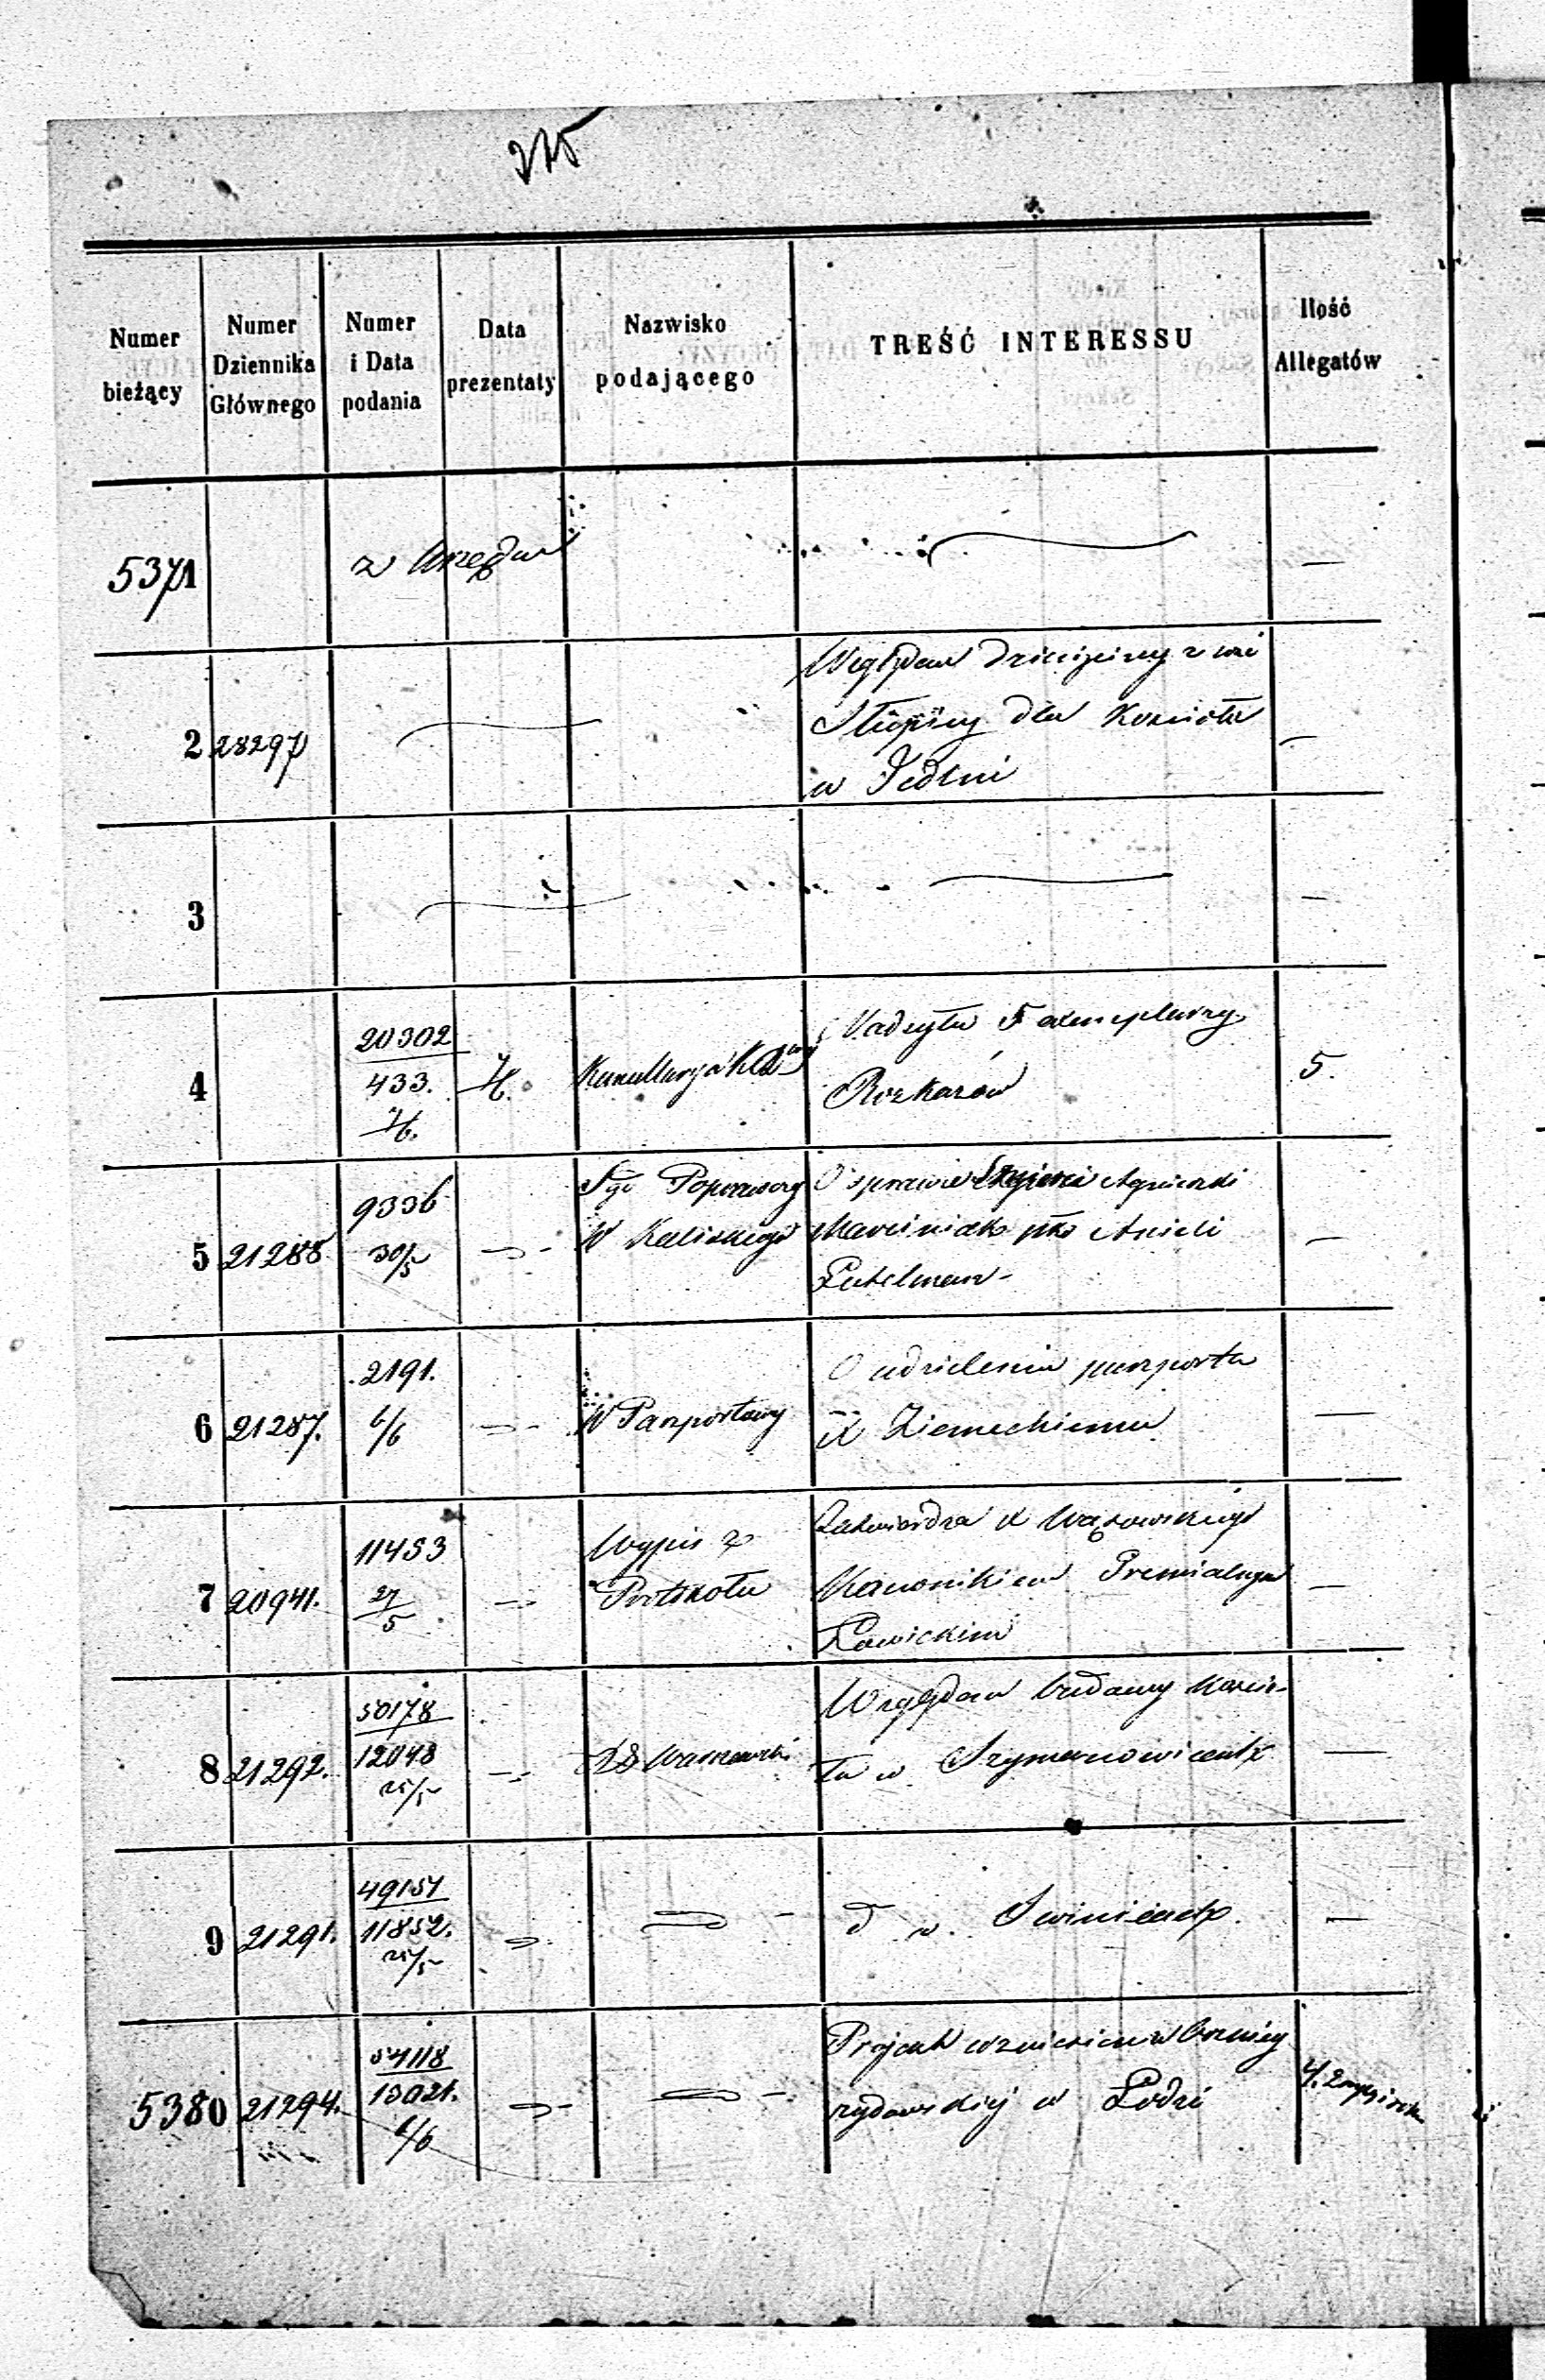 275
Numer bieżący
Numer Dziennika Głównego
Numer i Data podania
Data prezentaty
Nazwisko podającego
TREŚĆ INTERESSU
Ilość Allegatów
5371 z Urzędu —
2 28297
Względem dziesięciny z wsi
Słupicy dla Kościoła
w Jedlni
—
3 —
4
20302
433.
7/6.
7/6.
Kancellarya
Nadsyła 5 exemplarzy
Rozkazów
5.
5 21288
9336
30/5
Sąd Poprawczy
W Kaliskiego
O sprawie Agnieszki
Marciniak pko Anieli
—
6 21287.
2191.
6/6
W Paszportowy
O udzielenie paszportu
X Ziemeckiemu
—
7 20941.
11453
27/5
Wypis z
Protokołu
Zatwierdza X Wąsowskiego
Kanonikiem Gremialnym
Łowickim
—
8 21292.
50178
12048
25/5
RG Warszawski
Względem budowy Kościo-
ła w Szymanowicach
—
9 21291.
49154
11852.
25/5
d w. Świnicach.
—
5380 21294.
54118
13021.
6/6
Projekt wzniesienia Bożnicy
żydowskiej w Łodzi
4.